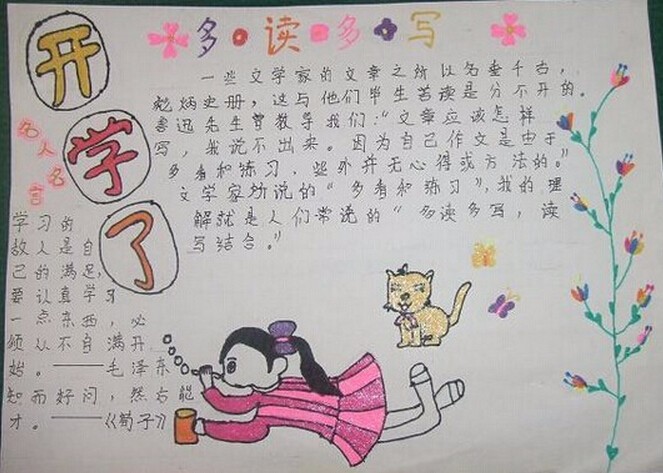 开学了
多读多写
一些文学家的文章之所以名垂千古，
彪炳史册，这与他们毕生善读是分不开的。
鲁迅先生曾教导我们：“文章应该怎样
写，我说不出来。因为自己作文是由于
多看和练习，些外并无心得或方法的。”
文学家所说的“多看和练习”，我的理
解就是人们常说的“多读多写，读
写结合。”
名人名言
学习的
敌人是自
己的满足，
要认真学习
一点东西，必
须从不自满开
始。——毛泽东
知而好问，然右能
才。——《荀子》